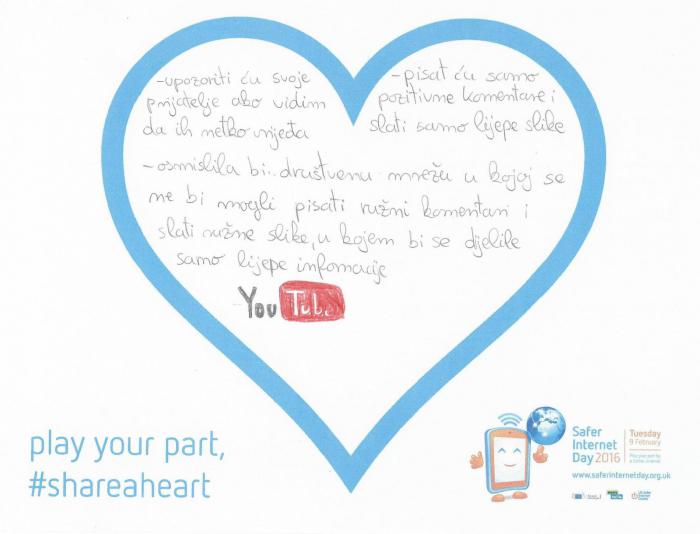 -upozoriti ću svoje
prijatelje ako vidim
da ih netko vrijeđa
-pisat ću samo
pozitivne komentare i
slati samo lijepe slike
-osmislila bi društvenu mrežu u kojoj se
ne bi mogli pisati ružni komentari i
slati ružne slike, u kojem bi se djelile
samo lijepe informacije
YouTube
play your part,
#shareaheart
Safer
Internet
Day 2016
Tuesday
9 February
Play your part for
a better internet
www.saferinternetday.org.uk
UK Safer
Internet
Centre